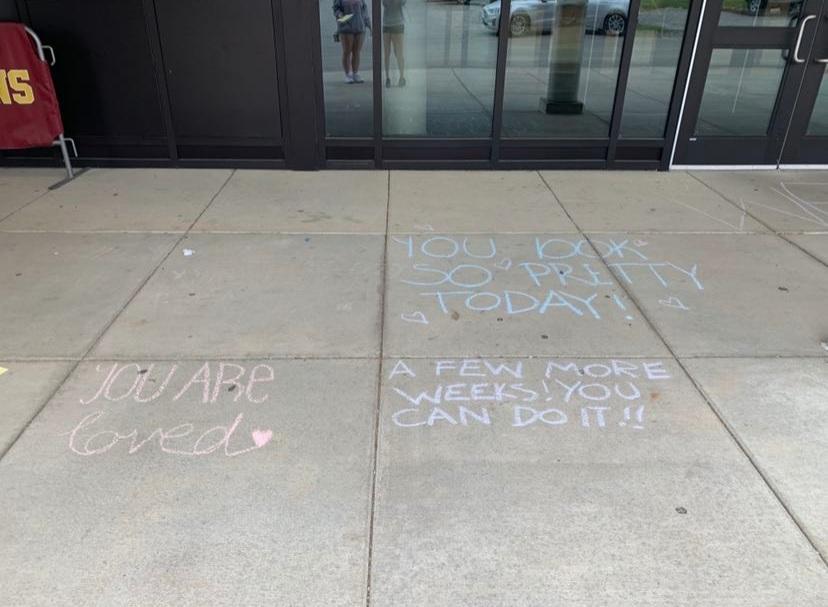 NS
YOU LOOK
SO PRETTY
TODAY!
YOU ARE
loved
A FEW MORE
WEEKS! YOU
CAN DO IT!!